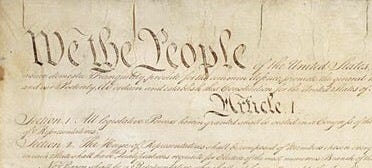 We the People of the United States,
insure domestic Tranquility, provide for the common defence, promote the general
and our Posterity, do ordain and establish this Constitution for the United States of
Article. I.
Section. 1. All legislative Powers herein granted shall be vested in a Congress of the
of Representatives.
Section. 2. The House of Representatives shall be composed of Members chosen every
in each State shall have Qualifications requisite for Electors of the most numerous Branch of